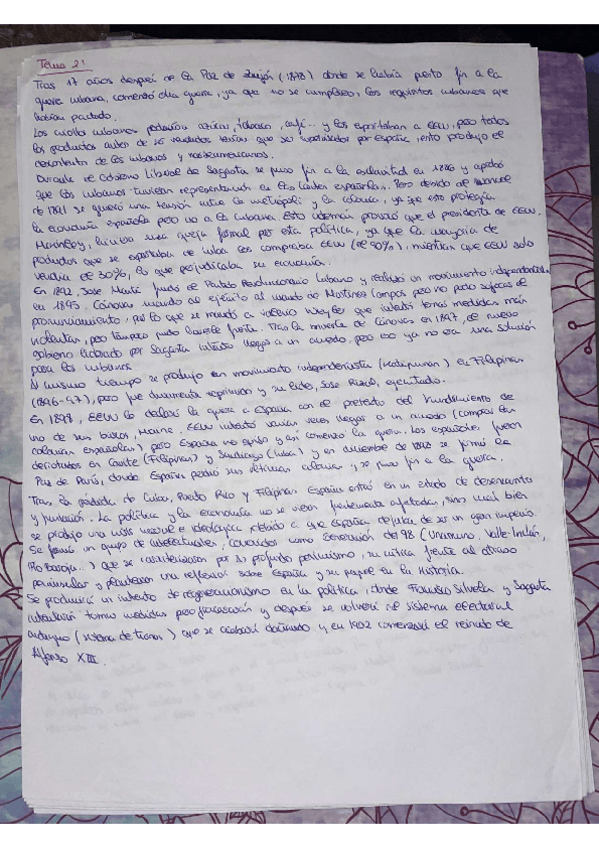 Tema 21
Tras 17 años después de la Paz de Zanjón (1878) donde se había puesto fin a la
guerra cubana, comenzó otra guerra, ya que no se cumplieron los requisitos cubanos que
habían pactado.
Los criollos cubanos producían azúcar, tabaco, café... y los exportaban a EEUU, pero todos
los productos antes de ser vendidos tenían que ser supervisados por España, esto produjo el
descontento de los cubanos y norteamericanos.
Durante el Gobierno Liberal de Sagasta se puso fin a la esclavitud en 1886 y aprobó
que los cubanos tuvieran representación en las Cortes españolas. Pero debido al arancel
de 1891 se generó una tensión entre la metrópoli y la colonia, ya que esto protegía
la economía española pero no a la cubana. Esto además provocó que el presidente de EEUU,
McKinley, hiciera una queja formal por esta política, ya que la mayoría de
productos que se exportaban de Cuba los compraba EEUU (el 90%), mientras que EEUU solo
vendía el 30%, lo que perjudicaba su economía.
En 1892, José Martí fundó el Partido Revolucionario Cubano y realizó un movimiento independentista
en 1895. Cánovas mandó al ejército al mando de Martínez Campos pero no pudo sofocar el
pronunciamiento, por lo que se mandó a Valeriano Weyler que intentó tomar medidas más
violentas, pero tampoco pudo hacerle frente. Tras la muerte de Cánovas en 1897, el nuevo
gobierno liderado por Sagasta intentó llegar a un acuerdo, pero eso ya no era una solución
para los cubanos.
Al mismo tiempo se produjo un movimiento independentista (Katipunan) en Filipinas
(1896-97), pero fue duramente reprimido y su líder, José Rizal, ejecutado.
En 1898, EEUU le declaró la guerra a España con el pretexto del hundimiento de
uno de sus barcos, Maine. EEUU intentó varias veces llegar a un acuerdo (comprar las
colonias españolas) pero España no quiso y así comenzó la guerra. Los españoles fueron
derrotados en Cavite (Filipinas) y Santiago (Cuba) y en diciembre de 1898 se firmó la
Paz de París, donde España perdió sus últimas colonias y se puso fin a la guerra.
Tras la pérdida de Cuba, Puerto Rico y Filipinas España entró en un estado de desencanto
y frustración. La política y la economía no se vieron fuertemente afectadas, sino más bien
se produjo una crisis moral e ideológica, debido a que España dejaba de ser un gran imperio.
Se formó un grupo de intelectuales, conocidos como Generación del 98 (Unamuno, Valle-Inclán,
Pío Baroja...) que se caracterizaron por su profundo pesimismo, su crítica frente al atraso
peninsular y plantearon una reflexión sobre España y su papel en la Historia.
Se producirá un intento de regeneracionismo en la política, donde Francisco Silvela y Sagasta
intentarán tomar medidas pero fracasarán y después se volverá al sistema electoral
antiguo (sistema de turnos) que se acabará dañando y en 1902 comenzará el reinado de
Alfonso XIII.